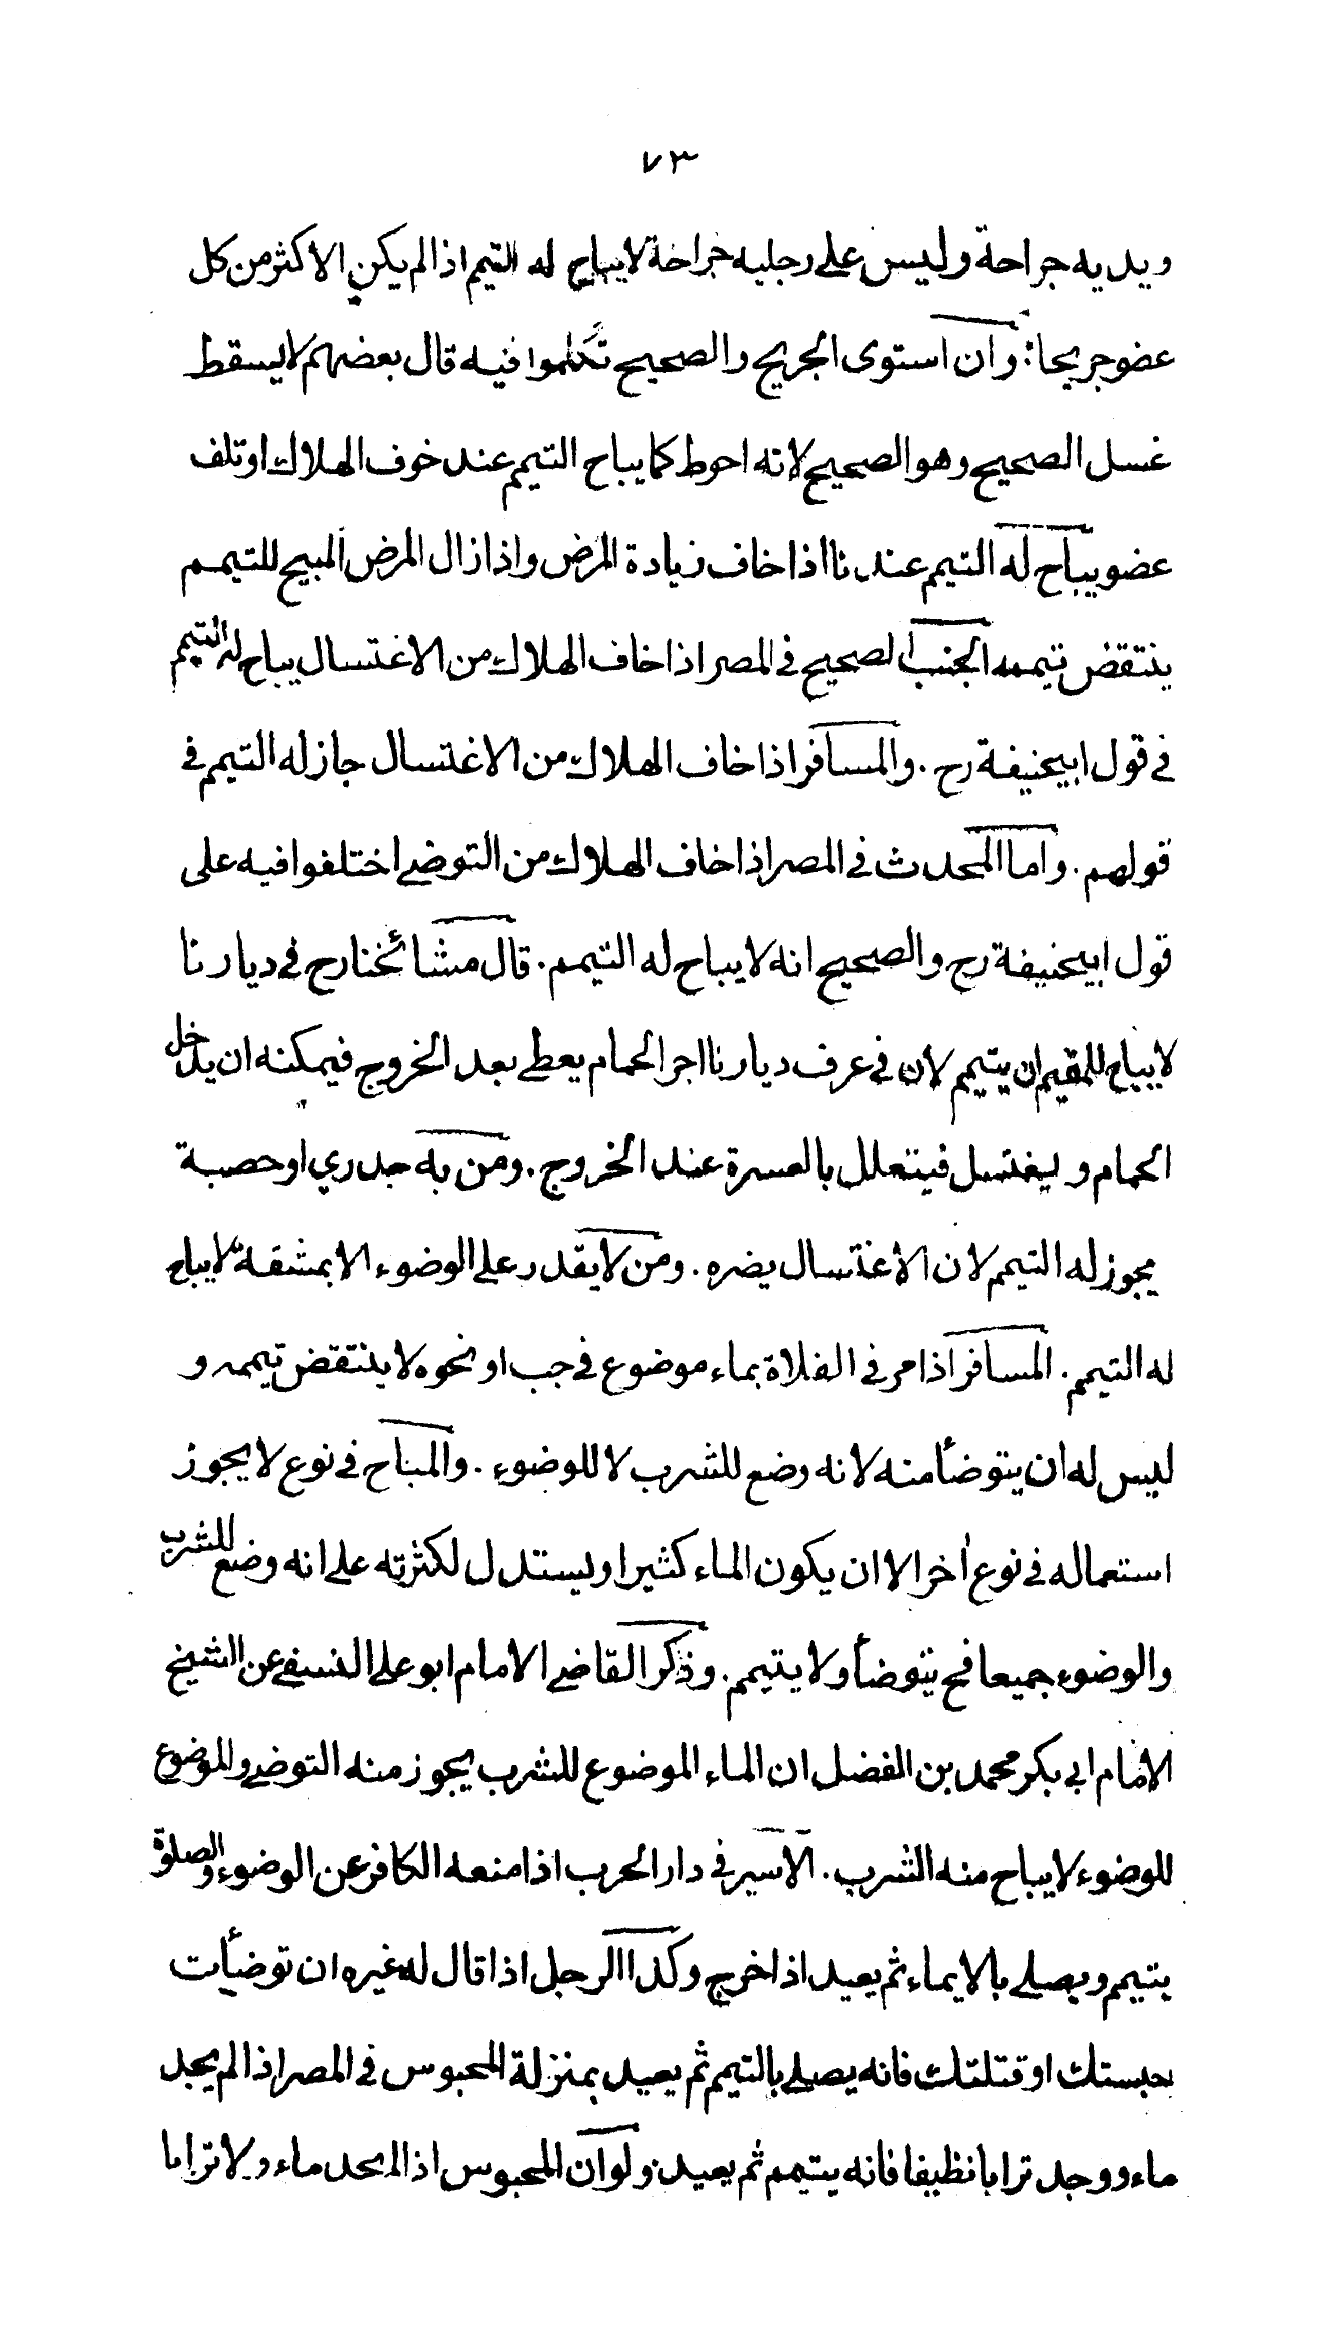 ٧٣
ويديه جراحة وليس على رجليه جراحة لايباح له التيمم اذا لم يكن الاكثر من كل
عضو جريحا : وان استوى الجريح والصحيح تكلموا فيه قال بعضهم لايسقط
غسل الصحيح وهو الصحيح لانه احوط كما يباح التيمم عند خوف الهلاك او تلف
عضو يباح له التيمم عندنا اذا خاف زيادة المرض واذا زال المرض المبيح للتيمم
ينتقض تيممه الجنب الصحيح في المصر اذا خاف الهلاك من الاغتسال يباح له التيمم
في قول ابيحنيفة رح . والمسافر اذا خاف الهلاك من الاغتسال جاز له التيمم في
قولهم . واما المحدث في المصر اذا خاف الهلاك من التوضي اختلفوا فيه على
قول ابيحنيفة رح والصحيح انه لا يباح له التيمم . قال مشائخنا رح في ديارنا
لايباح للمقيم ان يتيمم لان في عرف ديارنا اجر الحمام يعطى بعد الخروج فيمكنه ان يدخل
الحمام و يغتسل فيتعلل بالعسرة عند الخروج . ومن به جدري او حصبة
يجوز له التيمم لان الاغتسال يضره . ومن لايقدر على الوضوء الا بمشقة لايباح
له التيمم . المسافر اذا مر في الفلاة بماء موضوع في جب او نحوه لا ينتقض تيممه و
ليس له ان يتوضأ منه لانه وضع للشرب لا للوضوء . والمباح في نوع لا يجوز
استعماله في نوع أخر الا ان يكون الماء كثيرا و يستدل لكثرته على انه وضع للشرب
والوضوء جميعا فح يتوضأ ولا يتيمم . وذكر القاضي الامام ابو علي النسفي عن الشيخ
الامام ابي بكر محمد بن الفضل ان الماء الموضوع للشرب يجوز منه التوضي والموضوع
للوضوء لايباح منه الشرب . الاسير في دار الحرب اذا منعه الكافر عن الوضوء والصلوة
يتيمم ويصلي بالايماء ثم يعيد اذا خرج وكذا الرجل اذا قال له غيره ان توضأت
حبستك او قتلتك فانه يصلي بالتيمم ثم يعيد بمنزلة المحبوس في المصر اذا لم يجد
ماء ووجد ترابا نظيفا فانه يتيمم ثم يعيد ولو ان المحبوس اذا لم يجد ماء ولا ترابا